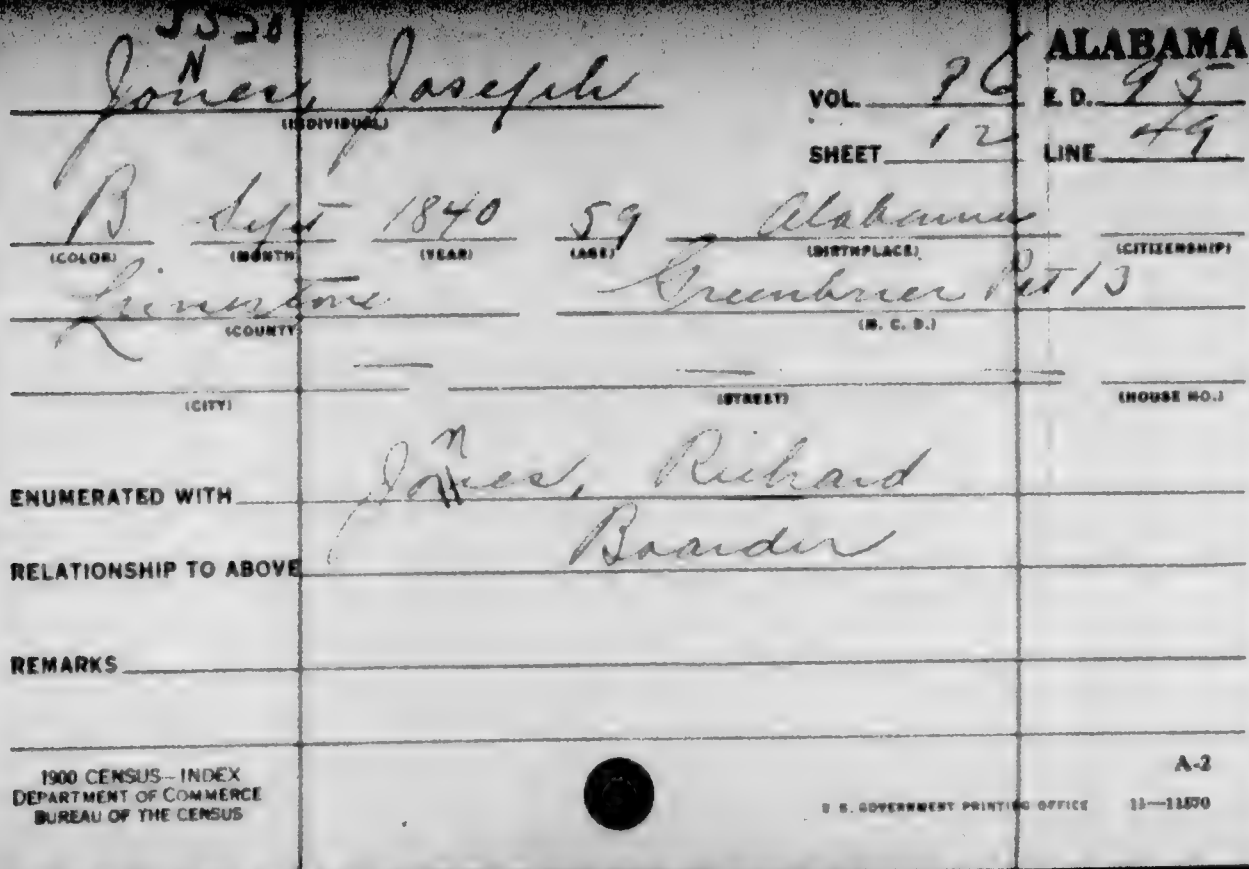 J520
ALABAMA
N
Jones, Joseph
(INDIVIDUAL)
VOL. 36 E. D. 95
SHEET 12 LINE 49
B Sept 1840 59 Alabama
(COLOR) (MONTH) (YEAR) (AGE) (BIRTHPLACE) (CITIZENSHIP)
Limestone Greenbrier Pct 13
(COUNTY) (M. C. D.)
(CITY) (STREET) (HOUSE NO.)
n
ENUMERATED WITH Jones, Richard
RELATIONSHIP TO ABOVE Boarder
REMARKS
1900 CENSUS—INDEX
DEPARTMENT OF COMMERCE
BUREAU OF THE CENSUS
A-2
U. S. GOVERNMENT PRINTING OFFICE 11—11570